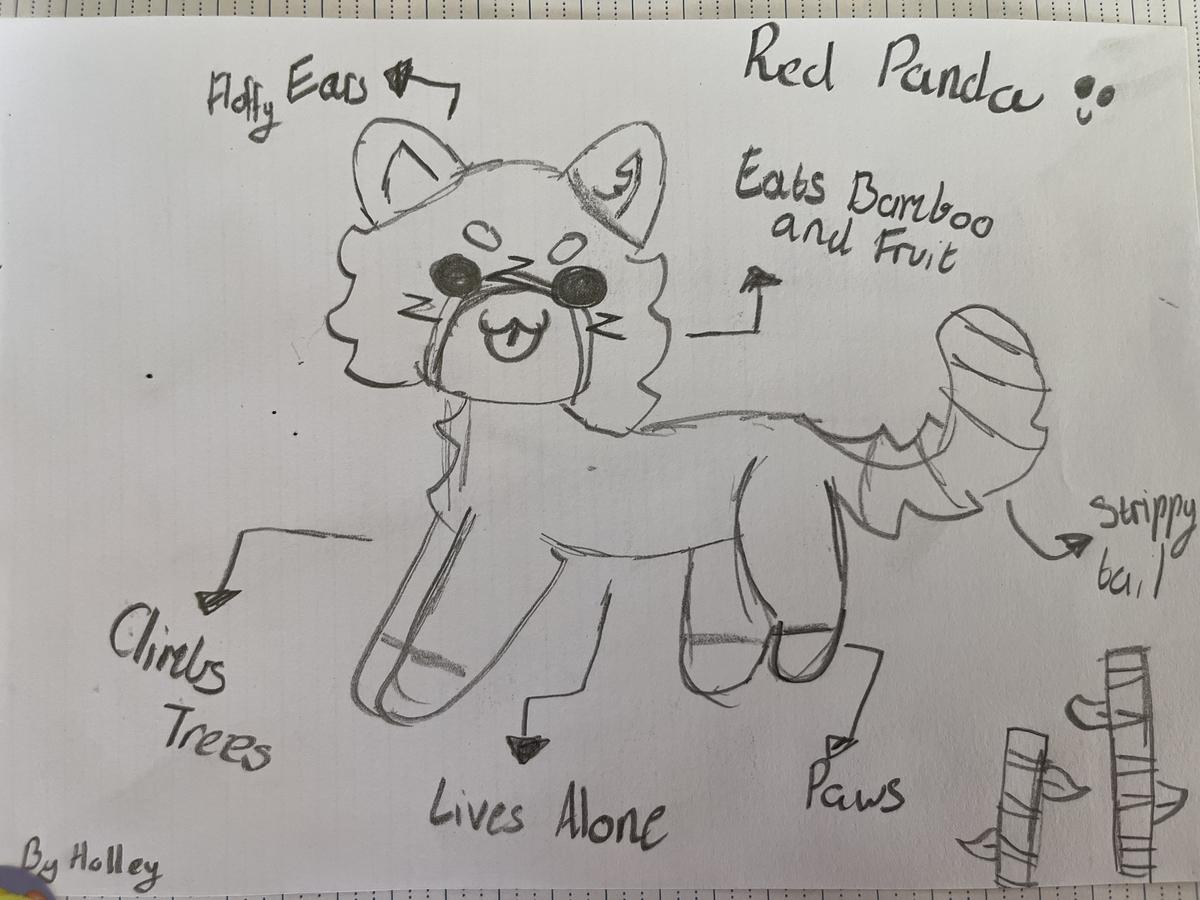 Red Panda
Floffy Ears
Eats Bamboo
and Fruit
Strippy
tail
Climbs
Trees
Lives Alone
Paws
By Holley